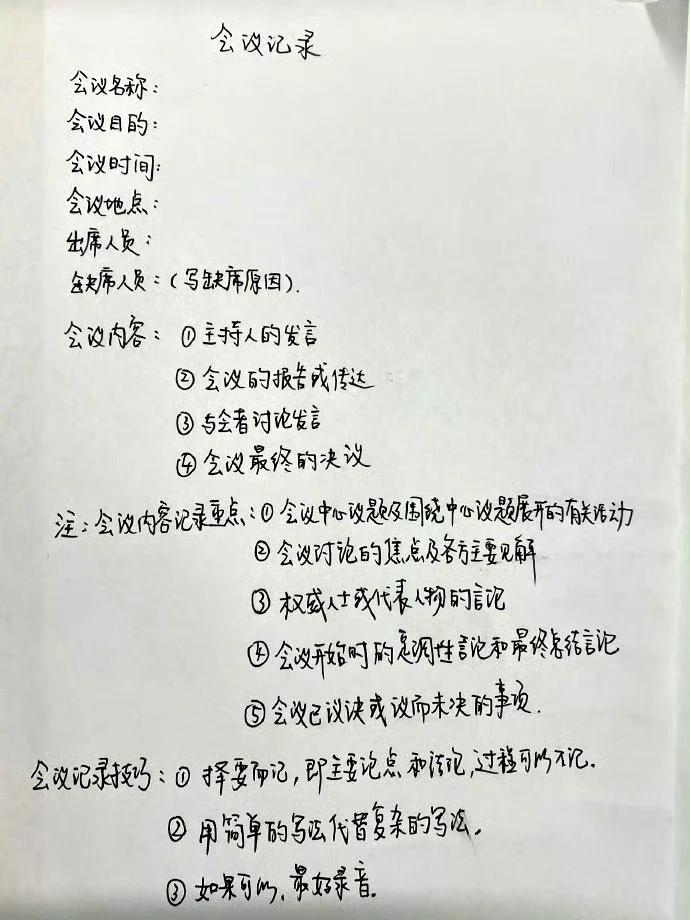 会议记录
会议名称：
会议目的：
会议时间：
会议地点：
出席人员：
缺席人员：（写缺席原因）.
会议内容：①主持人的发言
②会议的报告或传达
③与会者讨论发言
④会议最终的决议
注：会议内容记录重点：①会议中心议题及围绕中心议题展开的有关活动
②会议讨论的焦点及各方主要见解
③权威人士或代表人物的言论
④会议开始时的总调性言论和最终总结言论
⑤会议已议决或议而未决的事项.
会议记录技巧：①择要而记，即主要论点和结论，过程可以不记.
②用简单的写法代替复杂的写法。
③如果可以，最好录音.